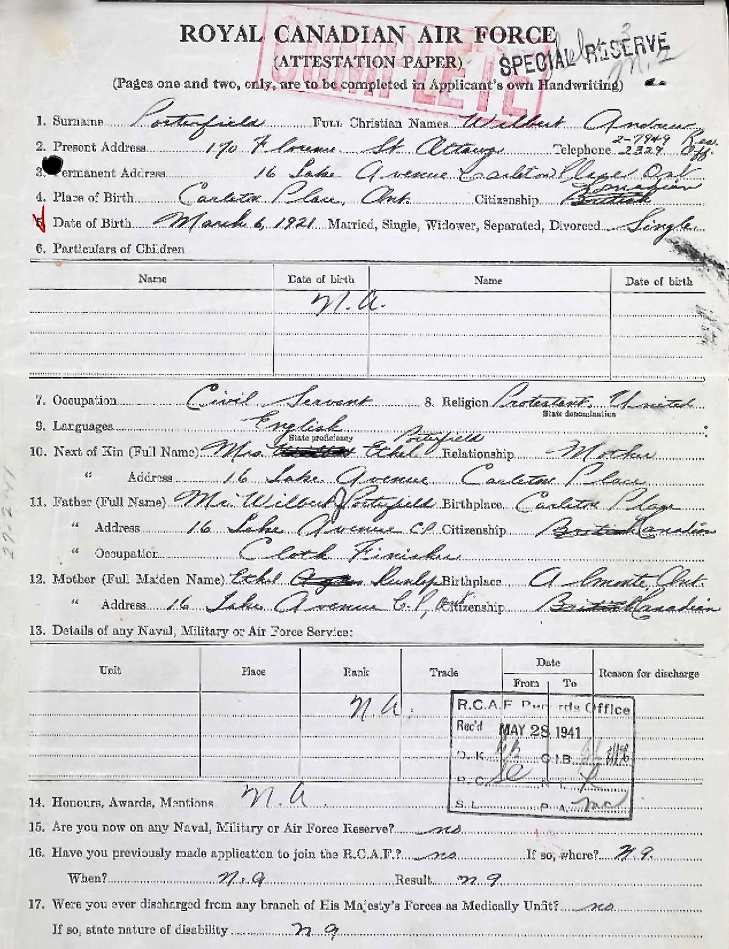 ROYAL CANADIAN AIR FORCE
(ATTESTATION PAPER)
COMPLETE
SPECIAL RESERVE
(Pages one and two, only, are to be completed in Applicant's own Handwriting)
1. Surname Porterfield Full Christian Names Wilbert Andrew
2. Present Address 170 Florence St Ottawa Telephone 2-7949 Res. 2329 Off.
3. Permanent Address 16 Lake Avenue Carleton Place Ont
4. Place of Birth Carleton Place, Ont. Citizenship British Canadian
5. Date of Birth March 6, 1921 Married, Single, Widower, Separated, Divorced Single
6. Particulars of Children
Name Date of birth Name Date of birth
N.A.
7. Occupation Civil Servant 8. Religion Protestant United
State denomination
9. Languages English
State proficiency
10. Next of Kin (Full Name) Mrs. Ethel Porterfield Relationship Mother
" Address 16 Lake Avenue Carleton Place
11. Father (Full Name) Mr. Wilbert J Porterfield Birthplace Carleton Place
" Address 16 Lake Avenue C.P. Citizenship British Canadian
" Occupation Cloth Finisher
12. Mother (Full Maiden Name) Ethel Dunlop Birthplace Almonte, Ont.
" Address 16 Lake Avenue C.P, Ont Citizenship British Canadian
13. Details of any Naval, Military or Air Force Service:
Unit Place Rank Trade Date From To Reason for discharge
N.A.
R.C.A.F. Records Office
Rec'd MAY 28 1941
O.K. C.I.B.
R.C.
S.L. P.A.
14. Honours, Awards, Mentions N.A
15. Are you now on any Naval, Military or Air Force Reserve? no
16. Have you previously made application to join the R.C.A.F.? no If so, where? N.A.
When? N.A Result n.a
17. Were you ever discharged from any branch of His Majesty's Forces as Medically Unfit? no
If so, state nature of disability n.a
29-2-41